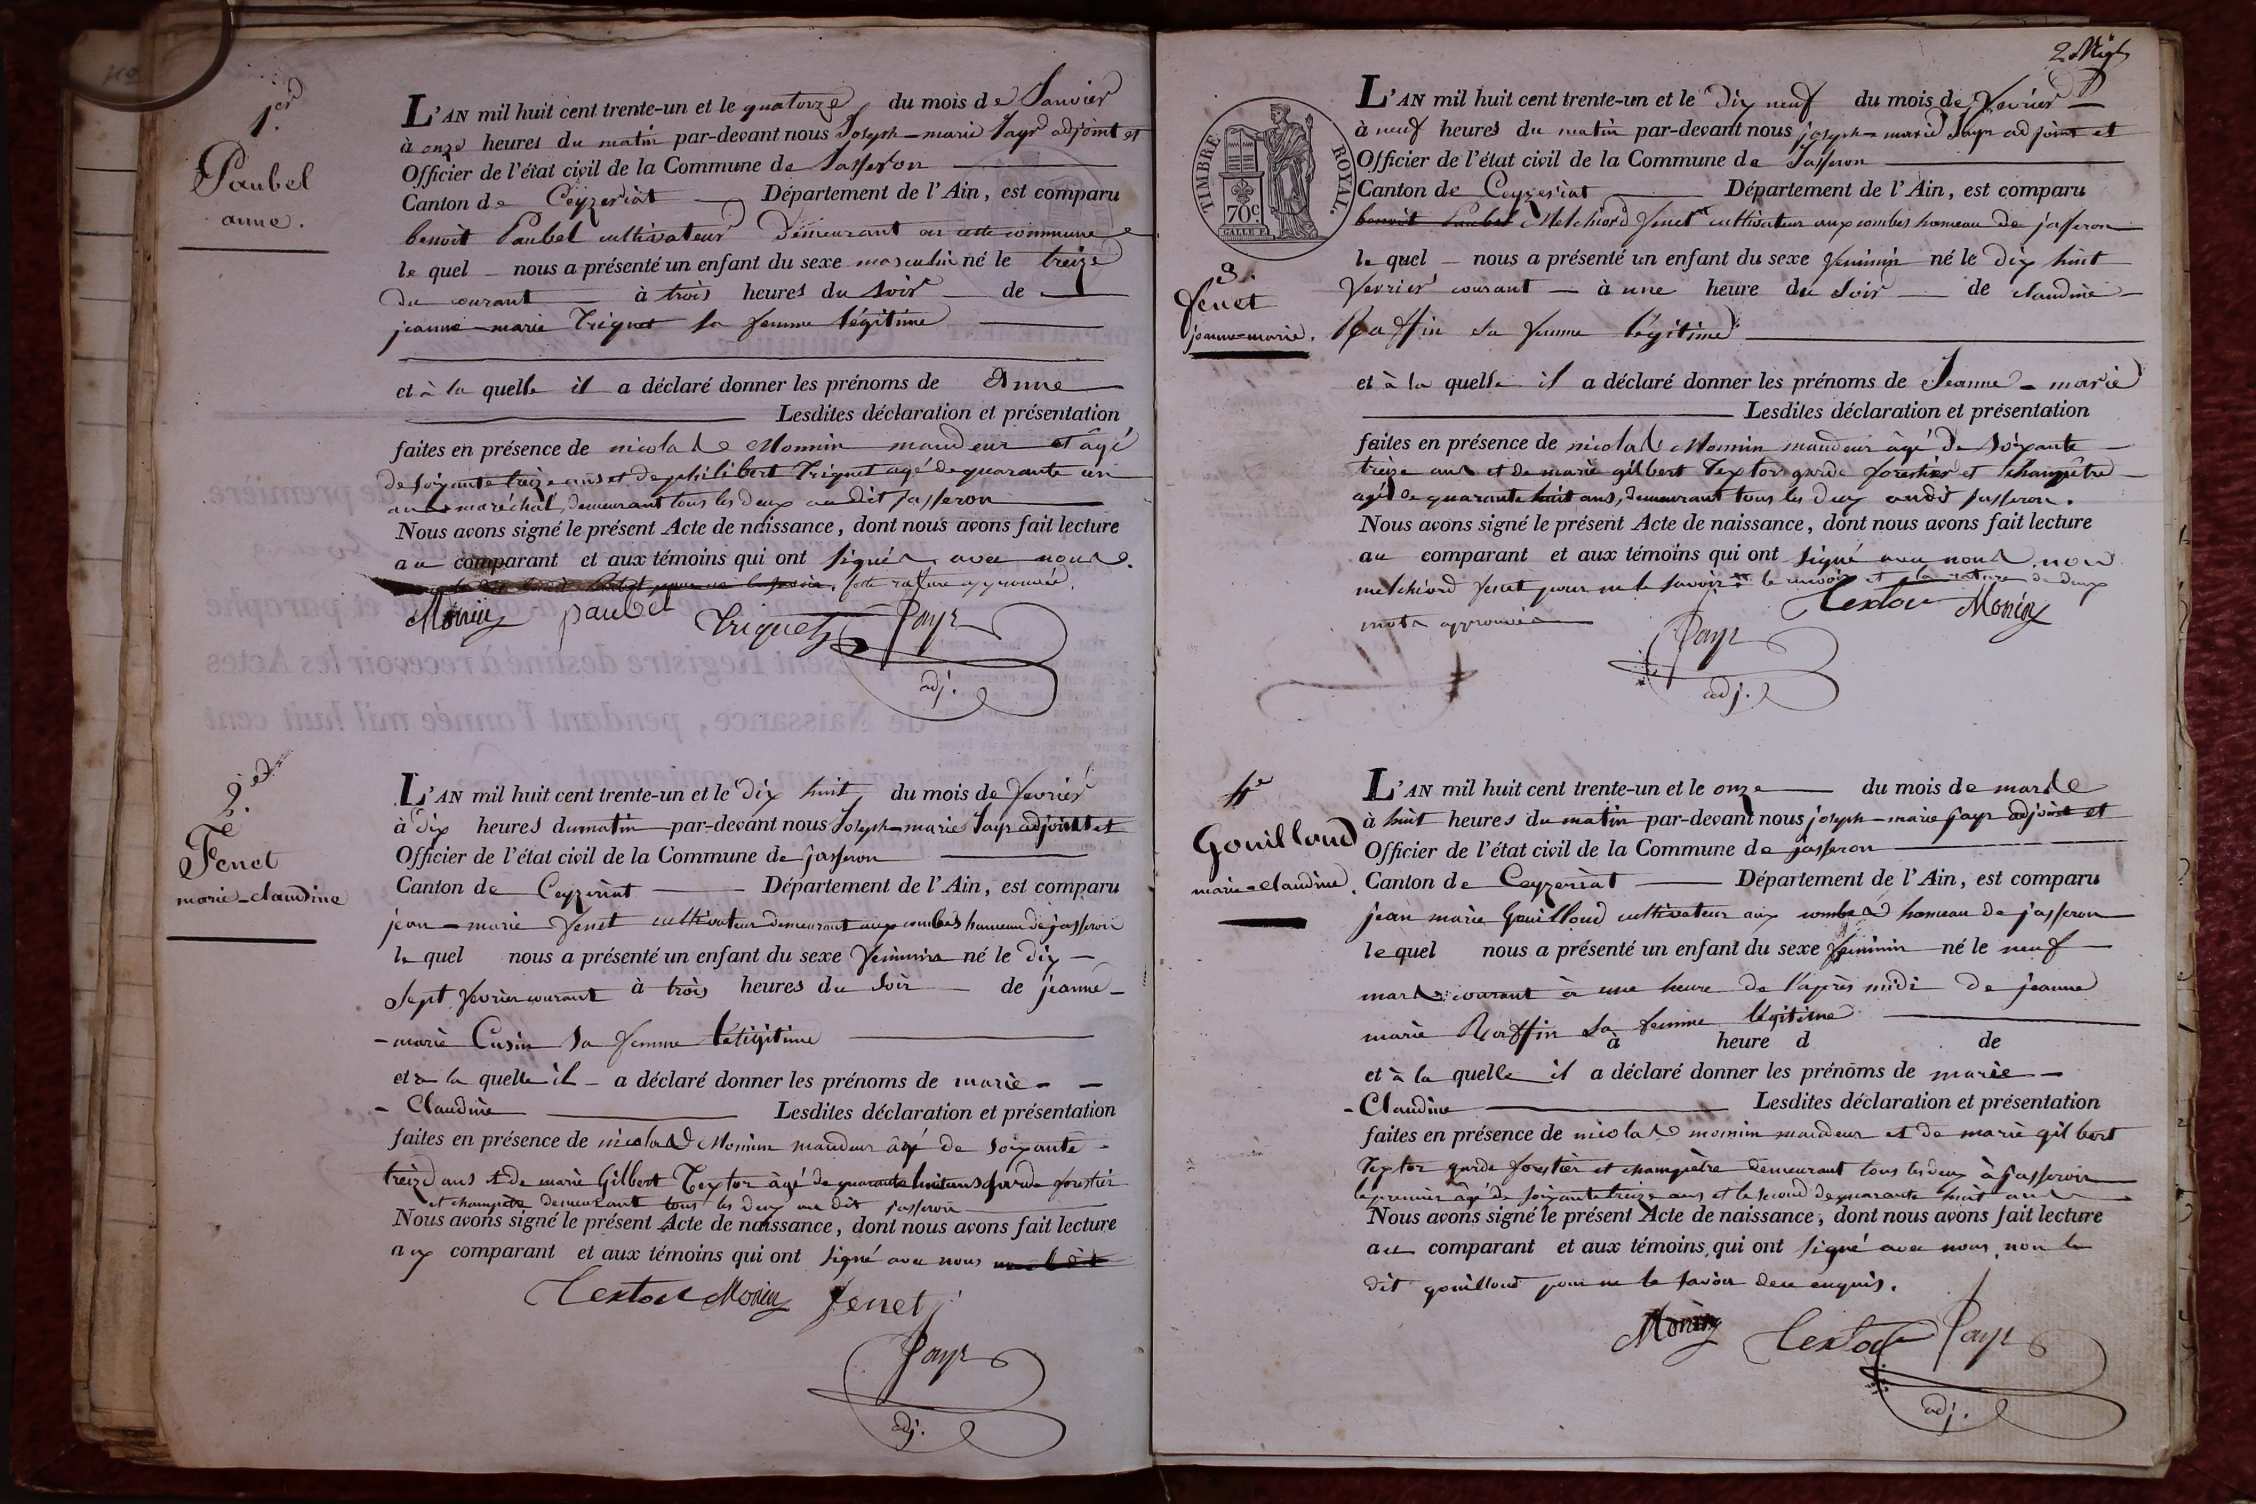 1.er
Paubel
anne.
L'AN mil huit cent trente-un et le quatorze du mois de Janvier
à onze heures du matin par-devant nous Joseph-marie Payr adjoint et
Officier de l'état civil de la Commune de Jasseron
Canton de Ceyzeriat Département de l'Ain, est comparu
benoit Paubel cultivateur Demeurant en cette commune
le quel nous a présenté un enfant du sexe masculin né le treize
du courant à trois heures du soir de
jeanne-marie Triquet sa femme légitime
et à la quelle il a déclaré donner les prénoms de Anne
Lesdites déclaration et présentation
faites en présence de nicolas Monnin maudeur et âgé
de soixante treize ans et de philibert Triquet agé de quarante un
ans maréchal, demeurant tous les deux au dit jasseron
Nous avons signé le présent Acte de naissance, dont nous avons fait lecture
au comparant et aux témoins qui ont signés avec nous.
cette rature approuvée.
Monin paubel Triquet Payr
adj.
2.e
Fenet
marie-claudine
L'AN mil huit cent trente-un et le dix huit du mois de fevrier
à dix heures du matin par-devant nous Joseph-marie Payr adjoint et
Officier de l'état civil de la Commune de jasseron
Canton de Ceyzeriat Département de l'Ain, est comparu
jean-marie fenet cultivateur demeurant aux combes hameau de jasseron
le quel nous a présenté un enfant du sexe feminin né le dix
sept fevrier courant à trois heures du soir de jeanne-
-marie Cusin sa femme letigitime
et à la quelle il a déclaré donner les prénoms de marie-
-Claudine Lesdites déclaration et présentation
faites en présence de nicolas Monnin maudeur âgé de soixante
treize ans et de marie Gilbert Textor âgé de quarante huit ans garde forestier
et champetre demeurant tous les deux au dit jasseron
Nous avons signé le présent Acte de naissance, dont nous avons fait lecture
aux comparant et aux témoins qui ont signé avec nous
Textor Monin fenet
Payr
adj.
TIMBRE ROYAL.
70c.
3.
fenet
jeanne-marie.
L'AN mil huit cent trente-un et le Dix neuf du mois de fevrier
à neuf heures du matin par-devant nous joseph-marie Payr adjoint et
Officier de l'état civil de la Commune de Jasseron
Canton de Ceyzeriat Département de l'Ain, est comparu
benoit Paubel Melchiord fenet cultivateur aux combes hameau de jasseron
le quel nous a présenté un enfant du sexe feminin né le dix huit
fevrier courant à une heure du soir de claudine
Raffin sa femme légitime
et à la quelle il a déclaré donner les prénoms de Jeanne-marie
Lesdites déclaration et présentation
faites en présence de nicolas Monnin maudeur âgé de soixante
treize ans et de marie gilbert Textor garde forestier et champêtre
agé de quarante huit ans, demeurant tous les deux audit jasseron.
Nous avons signé le présent Acte de naissance, dont nous avons fait lecture
au comparant et aux témoins qui ont signé avec nous non
melchiord fenet pour ne le savoir et la rature de deux
mots approuvée
Textor Monin
Payr
adj.
4e
Gouilloud
marie-claudine.
L'AN mil huit cent trente-un et le onze du mois de mars
à huit heures du matin par-devant nous joseph-marie payr adjoint et
Officier de l'état civil de la Commune de jasseron
Canton de Ceyzeriat Département de l'Ain, est comparu
jean marie Gouilloud cultivateur aux combes hameau de jasseron
le quel nous a présenté un enfant du sexe feminin né le neuf
mars courant à une heure de l'après midi de jeanne
marie Raffin sa femme légitime
à heure d de
et à la quelle il a déclaré donner les prénoms de marie-
-Claudine Lesdites déclaration et présentation
faites en présence de nicolas monnin maudeur et de marie gilbert
Textor garde forestier et champêtre demeurant tous les deux à jasseron
le premier âgé de soixante treize ans et le second de quarante huit ans
Nous avons signé le présent Acte de naissance, dont nous avons fait lecture
au comparant et aux témoins, qui ont signé avec nous, non le
dit gouilloud pour ne le savoir deu enquis.
Monin Textor Payr
adj.